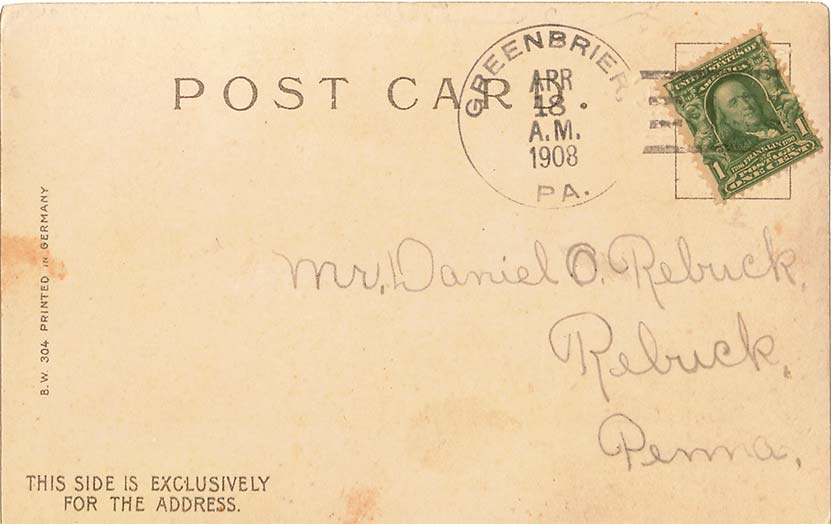 POST CARD.
GREENBRIER,
APR
18
A.M.
1908
PA.
UNITED STATES OF
AMERICA
1 FRANKLIN 1
POSTAGE
ONE CENT
Mr. Daniel O. Rebuck,
Rebuck,
Penna,
B. W. 304 PRINTED IN GERMANY
THIS SIDE IS EXCLUSIVELY
FOR THE ADDRESS.